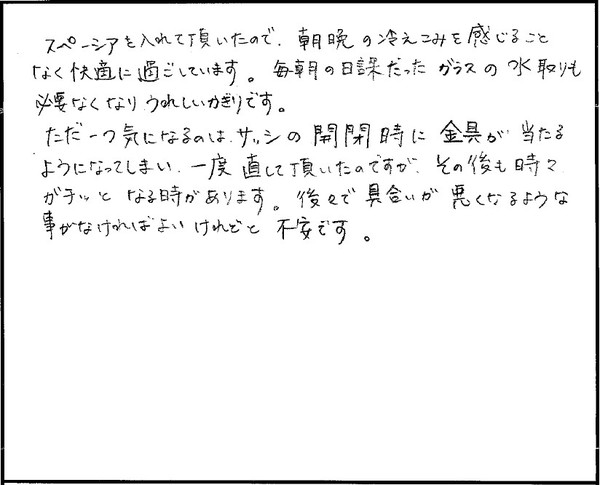 スペーシアを入れて頂いたので、朝晩の冷えこみを感じること
なく快適に過ごしています。毎朝の日課だったガラスの水取りも
必要なくなりうれしいかぎりです。
ただ一つ気になるのは、サッシの開閉時に金具が当たる
ようになってしまい、一度直して頂いたのですが、その後も時々
ガチッとなる時があります。後々で具合いが悪くなるような
事がなければよいけれどと不安です。